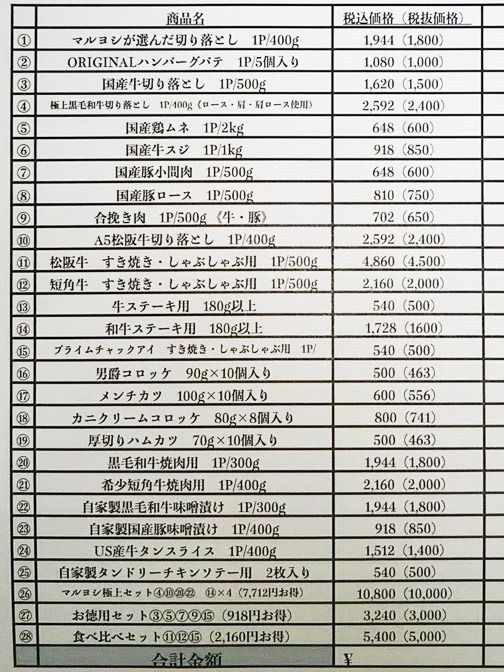 商品名 税込価格（税抜価格）
① マルヨシが選んだ切り落とし 1P/400g 1,944（1,800）
② ORIGINALハンバーグパテ 1P/5個入り 1,080（1,000）
③ 国産牛切り落とし 1P/500g 1,620（1,500）
④ 極上黒毛和牛切り落とし 1P/400g《ロース・肩・肩ロース使用》 2,592（2,400）
⑤ 国産鶏ムネ 1P/2kg 648（600）
⑥ 国産牛スジ 1P/1kg 918（850）
⑦ 国産豚小間肉 1P/500g 648（600）
⑧ 国産豚ロース 1P/500g 810（750）
⑨ 合挽き肉 1P/500g《牛・豚》 702（650）
⑩ A5松阪牛切り落とし 1P/400g 2,592（2,400）
⑪ 松阪牛 すき焼き・しゃぶしゃぶ用 1P/500g 4,860（4,500）
⑫ 短角牛 すき焼き・しゃぶしゃぶ用 1P/500g 2,160（2,000）
⑬ 牛ステーキ用 180g以上 540（500）
⑭ 和牛ステーキ用 180g以上 1,728（1600）
⑮ プライムチャックアイ すき焼き・しゃぶしゃぶ用 1P/ 540（500）
⑯ 男爵コロッケ 90g×10個入り 500（463）
⑰ メンチカツ 100g×10個入り 600（556）
⑱ カニクリームコロッケ 80g×8個入り 800（741）
⑲ 厚切りハムカツ 70g×10個入り 500（463）
⑳ 黒毛和牛焼肉用 1P/300g 1,944（1,800）
㉑ 希少短角牛焼肉用 1P/400g 2,160（2,000）
㉒ 自家製黒毛和牛味噌漬け 1P/300g 1,944（1,800）
㉓ 自家製国産豚味噌漬け 1P/400g 918（850）
㉔ US産牛タンスライス 1P/400g 1,512（1,400）
㉕ 自家製タンドリーチキンソテー用 2枚入り 540（500）
㉖ マルヨシ極上セット④⑩⑳㉒ ⑭×4（7,712円お得） 10,800（10,000）
㉗ お徳用セット③⑤⑦⑨⑮（918円お得） 3,240（3,000）
㉘ 食べ比べセット⑪⑫⑮（2,160円お得） 5,400（5,000）
合計金額 ￥